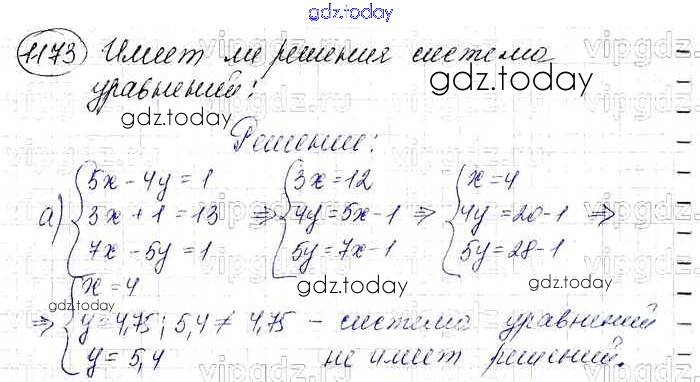 gdz.today
1173 Имеет ли решения система
уравнений:
gdz.today
gdz.today
Решение:
а) { 5x - 4y = 1 ⇒ { 3x = 12 ⇒ { x = 4
3x + 1 = 13 4y = 5x - 1 4y = 20 - 1 ⇒
7x - 5y = 1 5y = 7x - 1 5y = 28 - 1
gdz.today
gdz.today
⇒ { x = 4
gdz.today
y = 4,75 ; 5,4 ≠ 4,75 - система уравнений
y = 5,4 не имеет решений.